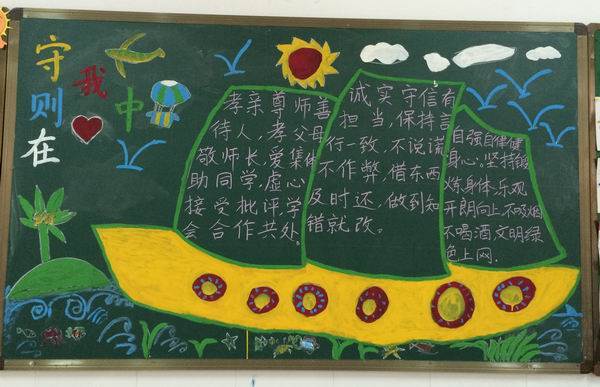 守则在
我
中
孝亲尊师善
待人，孝父母
敬师长，爱集体
助同学，虚心
接受批评，学
会合作共处。
诚实守信有
担当，保持言
行一致，不说谎
不作弊，借东西
及时还，做到知
错就改。
自强自律健
身心。坚持锻
炼身体，乐观
开朗向上，不吸烟
不喝酒，文明绿
色上网.